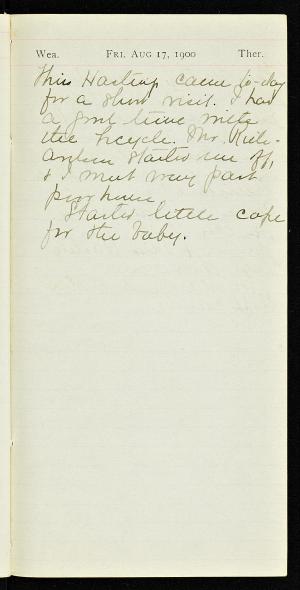 Wea. FRI. AUG 17, 1900 Ther.
Miss Hastings came to-day
for a short visit. I had
a good time with
the bicycle. Mr. Rich-
ardson started me off,
& I went very fast
for the baby.
Started little cape